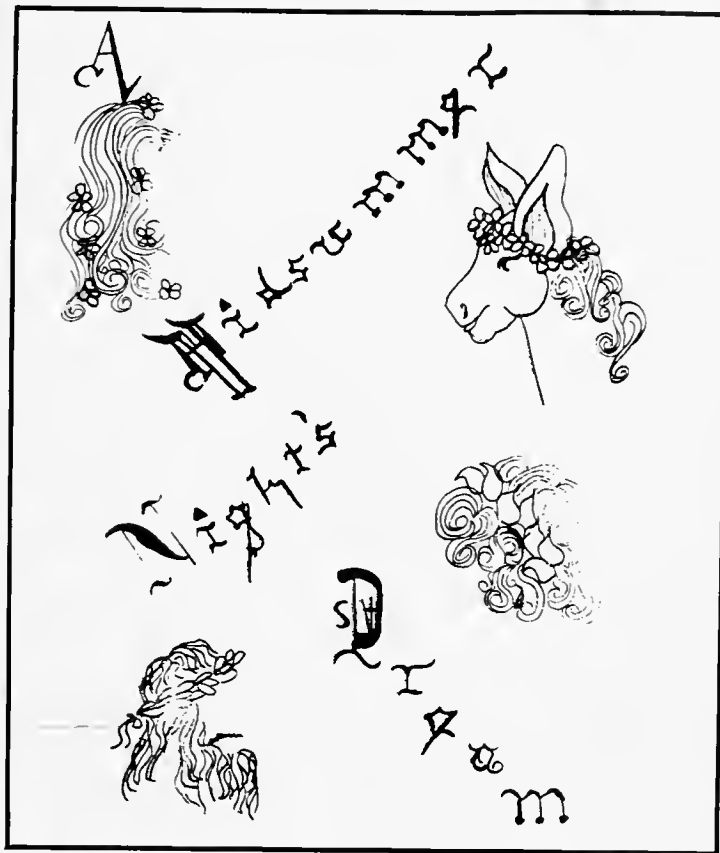 A
Midsummer
Night's
Dream